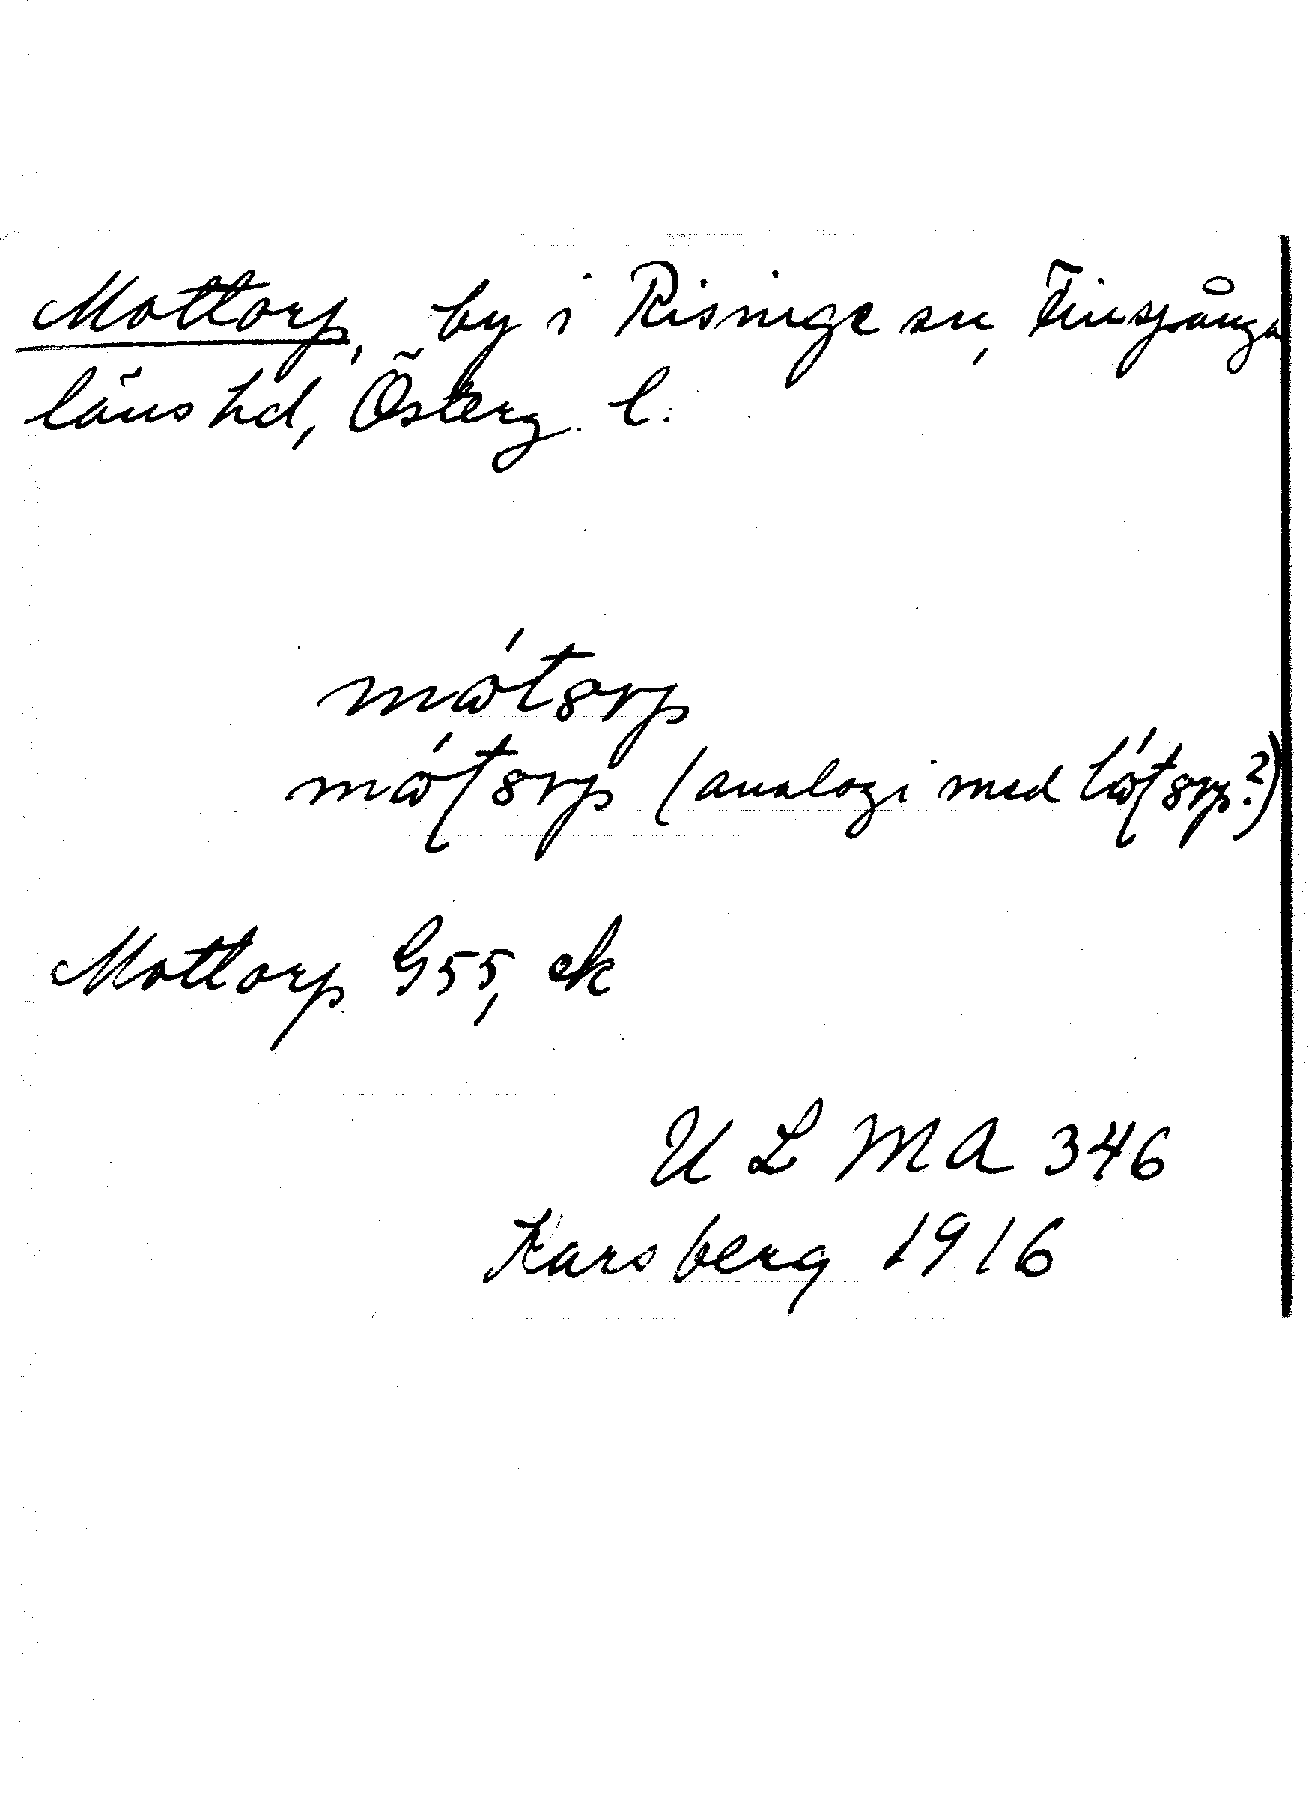 Mottorp, by i Risinge sn, Finspånga
läns hd, Österg. l.
mo̊́t8rp
(analogi med
Mottorp G55, ek
ULMA 346
Karsberg 1916